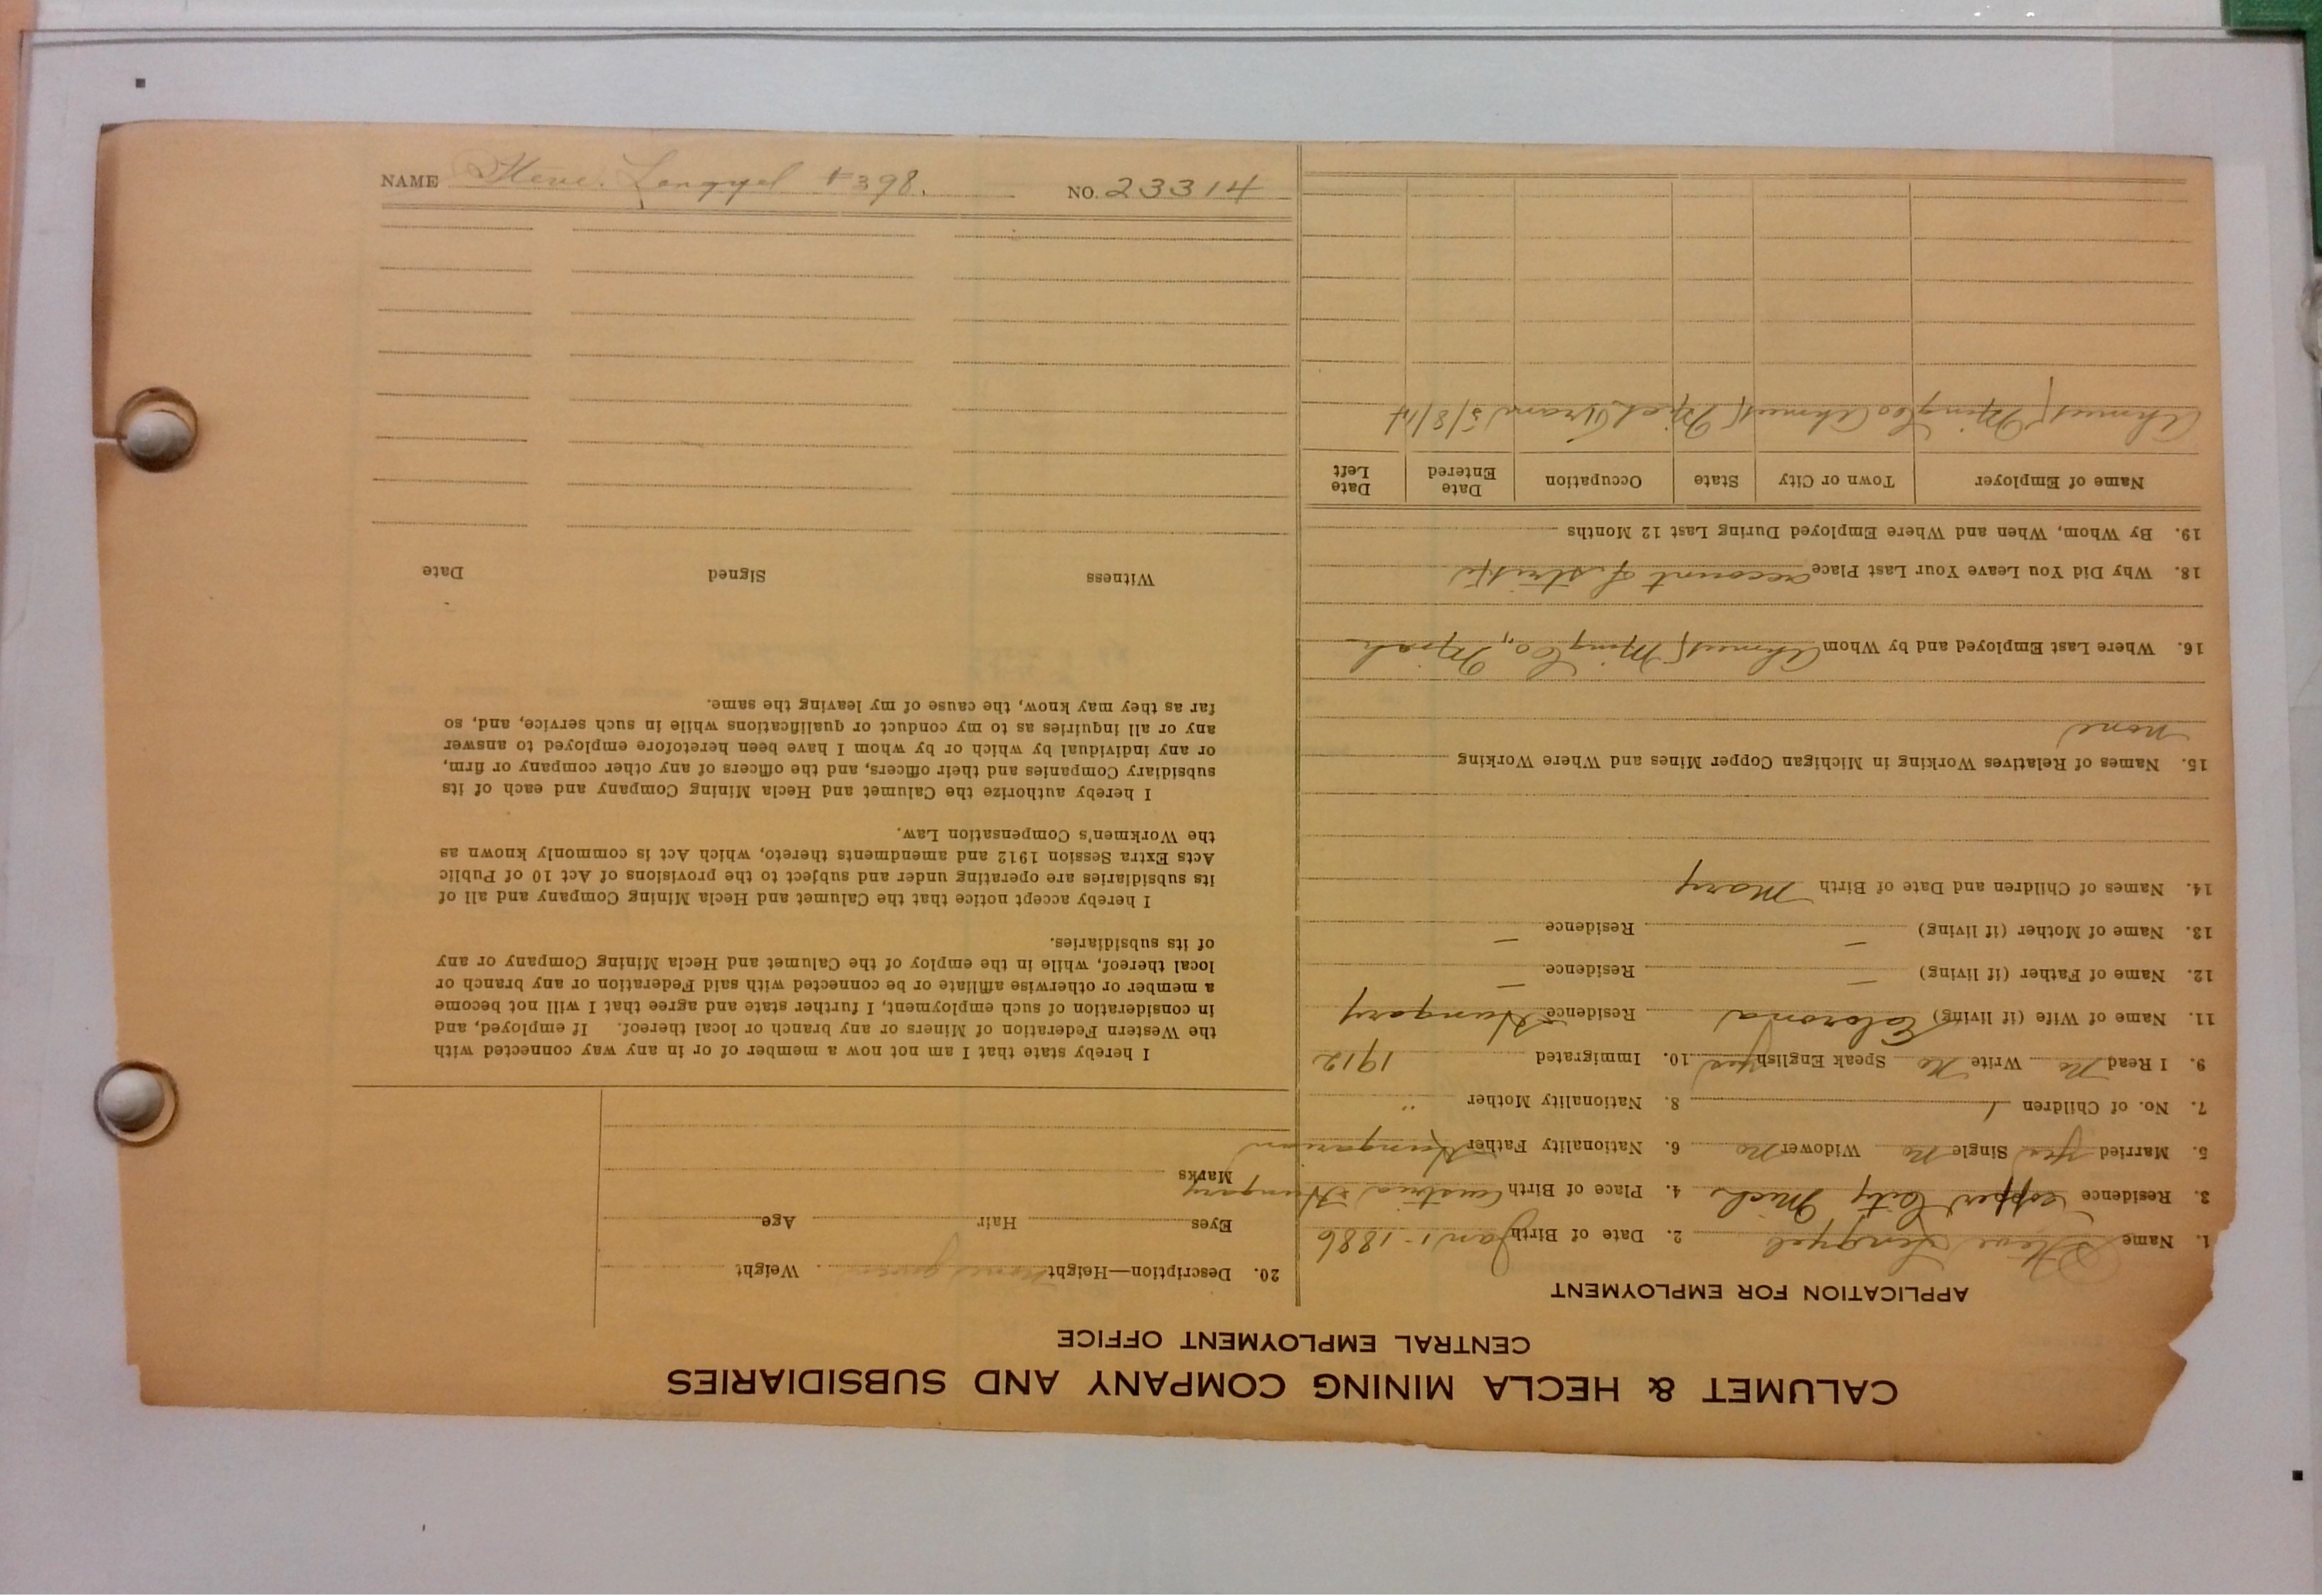 CALUMET & HECLA MINING COMPANY AND SUBSIDIARIES
CENTRAL EMPLOYMENT OFFICE
APPLICATION FOR EMPLOYMENT
1. Name Steve Lengyel 2. Date of Birth Jan 1 - 1886
3. Residence Copper City Mich 4. Place of Birth Austria Hungary
5. Married yes Single no Widower no 6. Nationality Father Hungarian
7. No. of Children 1 8. Nationality Mother "
9. I Read no Write no Speak English yes 10. Immigrated 1912
11. Name of Wife (if living) Residence Hungary
12. Name of Father (if living) — Residence —
13. Name of Mother (if living) — Residence —
14. Names of Children and Date of Birth Mary
15. Names of Relatives Working in Michigan Copper Mines and Where Working
none
16. Where Last Employed and by Whom Ahmeek Ming Co., Mich
18. Why Did You Leave Your Last Place account of strike
19. By Whom, When and Where Employed During Last 12 Months
Name of Employer Town or City State Occupation Date Entered Date Left
Ahmeek Ming Co Ahmeek Mich Tram 5/8/14
20. Description—Height None given Weight
Eyes Hair Age
Marks
I hereby state that I am not now a member of or in any way connected with
the Western Federation of Miners or any branch or local thereof. If employed, and
in consideration of such employment, I further state and agree that I will not become
a member or otherwise affiliate or be connected with said Federation or any branch or
local thereof, while in the employ of the Calumet and Hecla Mining Company or any
of its subsidiaries.
I hereby accept notice that the Calumet and Hecla Mining Company and all of
its subsidiaries are operating under and subject to the provisions of Act 10 of Public
Acts Extra Session 1912 and amendments thereto, which Act is commonly known as
the Workmen's Compensation Law.
I hereby authorize the Calumet and Hecla Mining Company and each of its
subsidiary Companies and their officers, and the officers of any other company or firm,
or any individual by which or by whom I have been heretofore employed to answer
any or all inquiries as to my conduct or qualifications while in such service, and, so
far as they may know, the cause of my leaving the same.
Witness Signed Date
NAME Steve. Longyel #398. NO. 23314